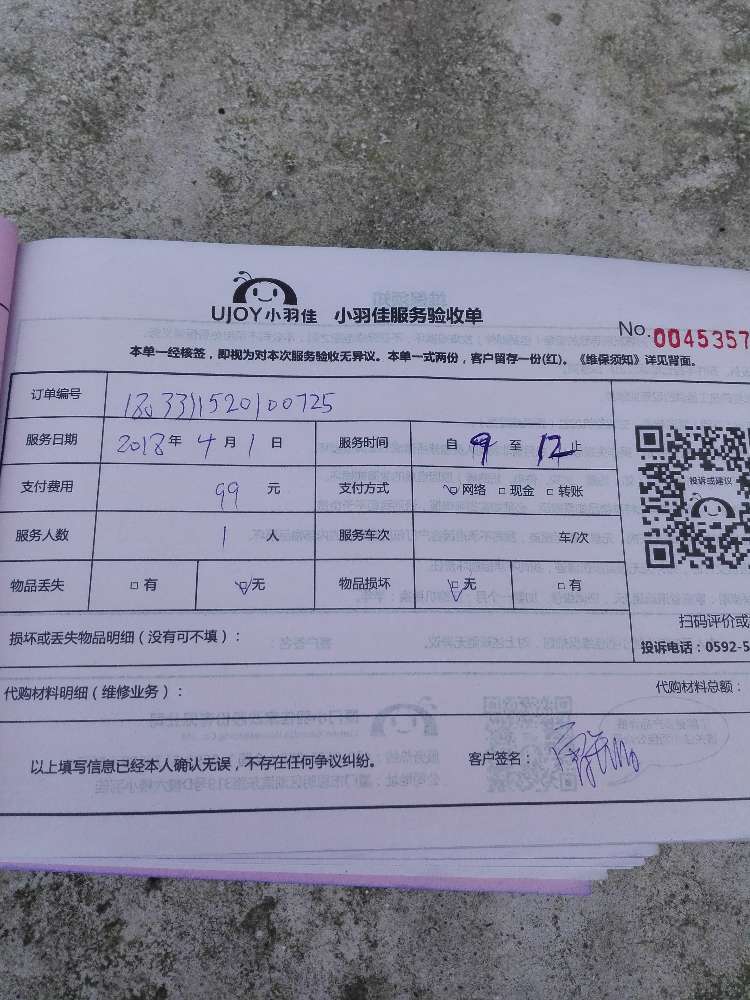 UJOY小羽佳 小羽佳服务验收单
No. 0045357
本单一经核签，即视为对本次服务验收无异议。本单一式两份，客户留存一份(红)。《维保须知》详见背面。
订单编号
服务日期 2018年 4 月 1 日 服务时间 自 9 至 12 止
支付费用 99 元 支付方式 网络 现金 转账
服务人数 1 人 服务车次 车/次
投诉或建议
物品丢失 有 无 物品损坏 无 有
扫码评价或
损坏或丢失物品明细（没有可不填）：
投诉电话：0592-5
代购材料明细（维修业务）： 代购材料总额：
以上填写信息已经本人确认无误，不存在任何争议纠纷。 客户签名：